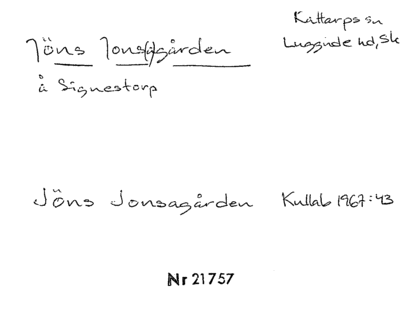 Jöns Jons(a)gården
Kattarps sn
Luggude hd, Sk
å Signestorp
Jöns Jonsagården Kullab 1967:43
Nr 21757